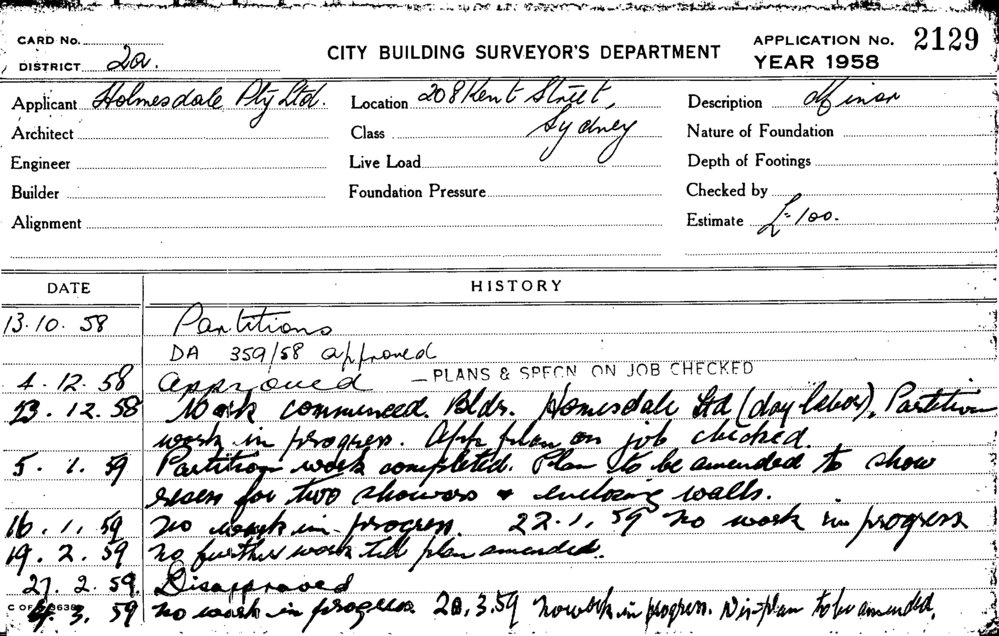 CARD No.
DISTRICT 2a.
CITY BUILDING SURVEYOR'S DEPARTMENT
APPLICATION No. 2129
YEAR 1958
Applicant Holmesdale Pty Ltd.
Location 208 Kent Street,
Sydney
Description Minor
Architect
Class
Nature of Foundation
Engineer
Live Load
Depth of Footings
Builder
Foundation Pressure
Checked by
Alignment
Estimate £100.
DATE HISTORY
13.10.58 Partitions
DA 359/58 approved
4.12.58 Approved — PLANS & SPECN ON JOB CHECKED
23.12.58 Work commenced. Bldr. Homesdale Ltd (day labor). Partition
work in progress. App plan on job checked.
5.1.59 Partition work completed. Plan to be amended to show
for two showers & enclosing walls.
16.1.59 no work in progress 22.1.59 no work in progress
19.2.59 no further work till plan amended.
27.2.59. Disapproved
4.3.59 no work in progress 20.3.59 no work in progress. plan to be amended.